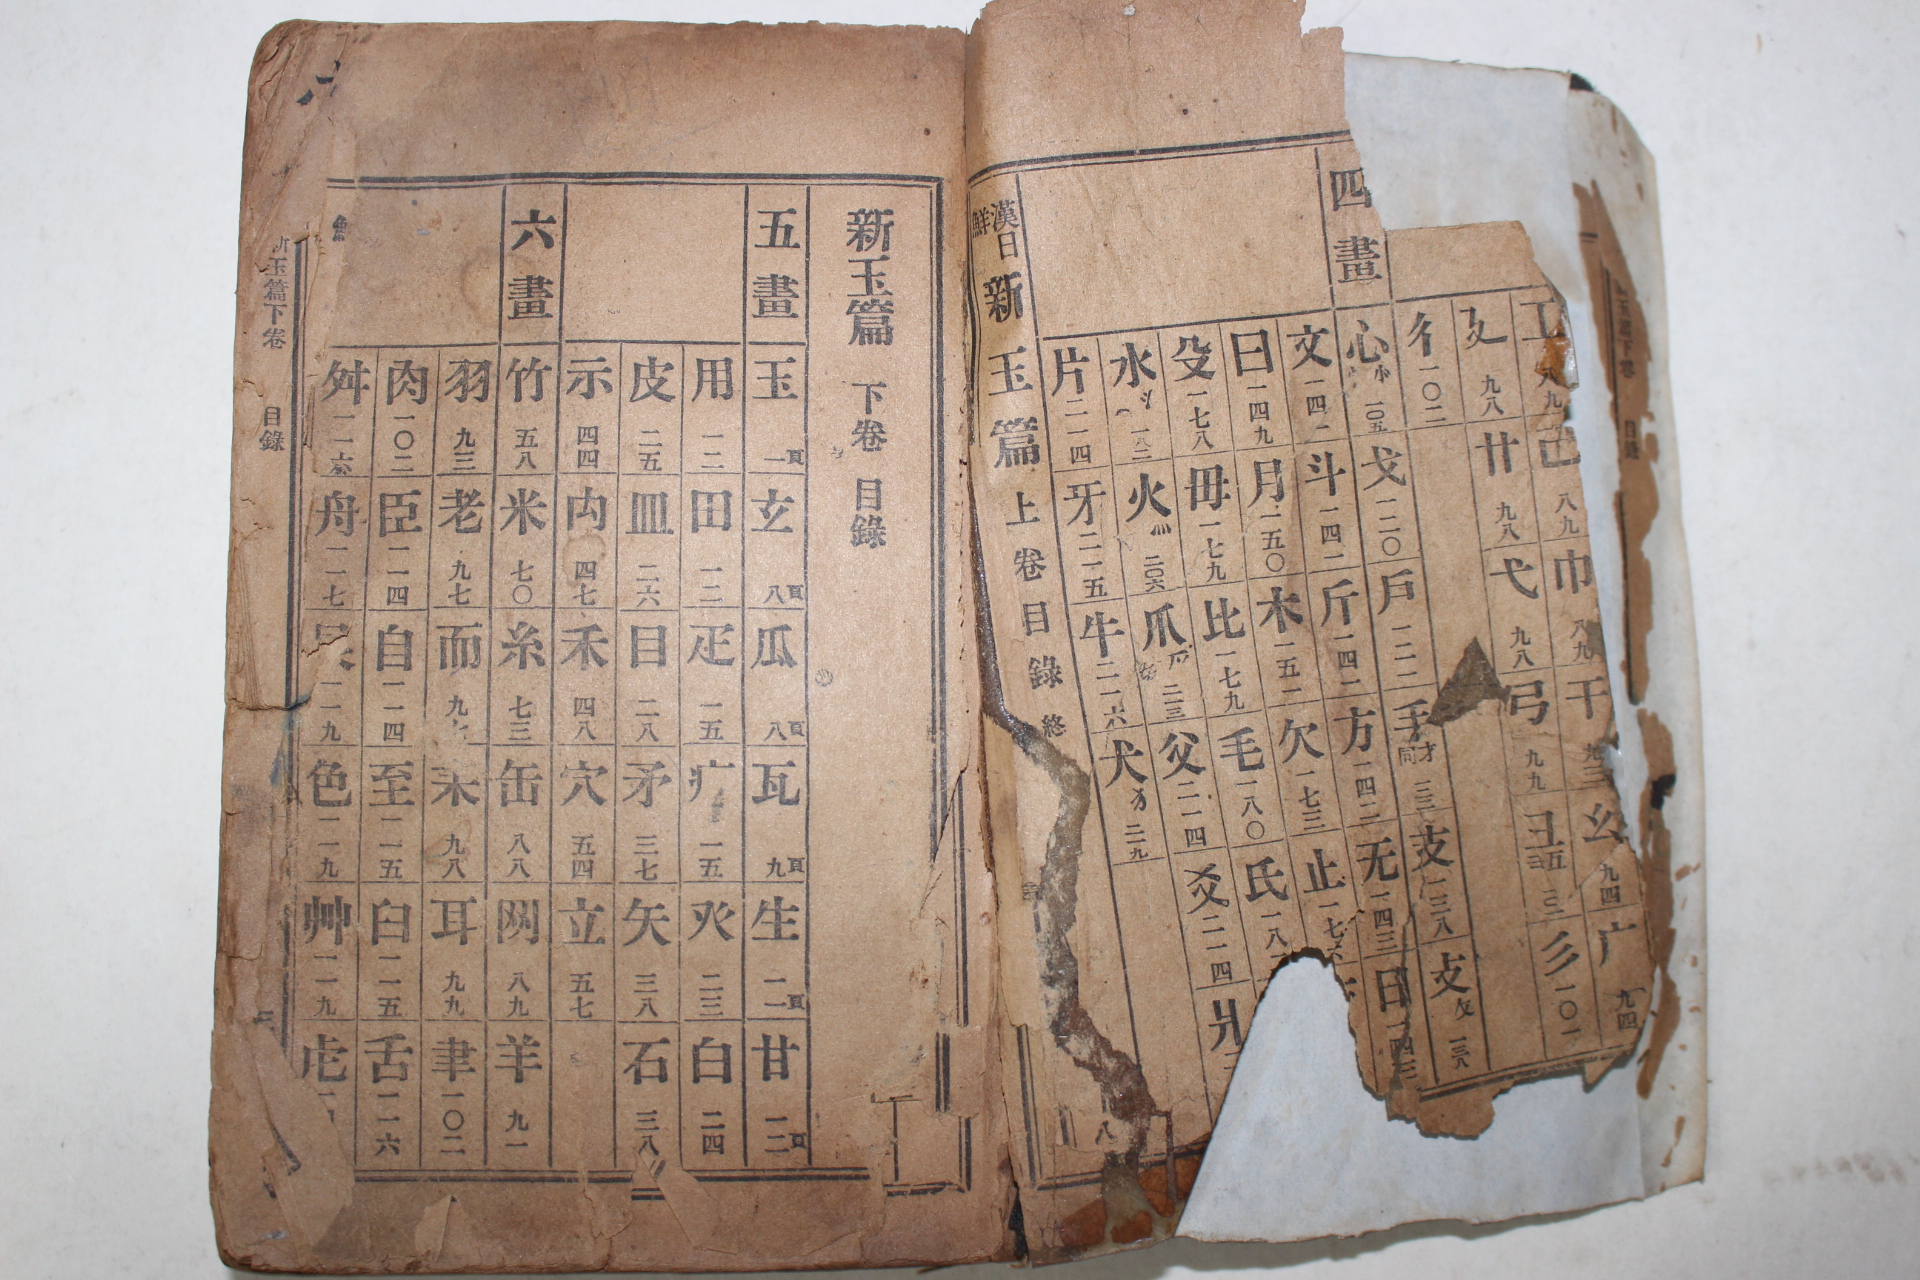 工 八九 己 八九 巾 八九 干 九三 幺 九四 广 九四
廴 九八 廾 九八 弋 九八 弓 九九 彐 彡 一〇一
彳 一〇二
四畫
心 小 一〇五 戈 一二〇 戶 一二二 手 才同 支 一三八 攴 攵 一三八
文 斗 一四二 斤 一四二 方 一四二 无 一四三 日 一四三
曰 一四九 月 一五〇 木 一五二 欠 一七三 止 一七六
殳 一七八 毋 一七九 比 一七九 毛 一八〇 氏 一八
水 氵 一八二 火 灬 二〇六 爪 父 二一四 爻 二一四 爿
片 二一四 牙 二一五 牛 二一六 犬 犭 二一九
漢日鮮 新玉篇 上卷目錄 終
八
新玉篇 下卷 目錄
五畫 玉 一頁 玄 八頁 瓜 八頁 瓦 九頁 生 一一頁 甘 一二頁
用 一二 田 一二 疋 一五 疒 一五 癶 二三 白 二四
皮 二五 皿 二六 目 二八 矛 三七 矢 三八 石 三八
示 四四 禸 四七 禾 四八 穴 五四 立 五七
六畫 竹 五八 米 七〇 糸 七三 缶 八八 网 八九 羊 九一
羽 九三 老 九七 而 九七 耒 九八 耳 九九 聿 一〇二
肉 一〇二 臣 一一四 自 一一四 至 一一五 臼 一一五 舌 一一六
舛 一一六 舟 一一七 艮 一一九 色 一一九 艸 一一九 虍
新玉篇下卷 目錄